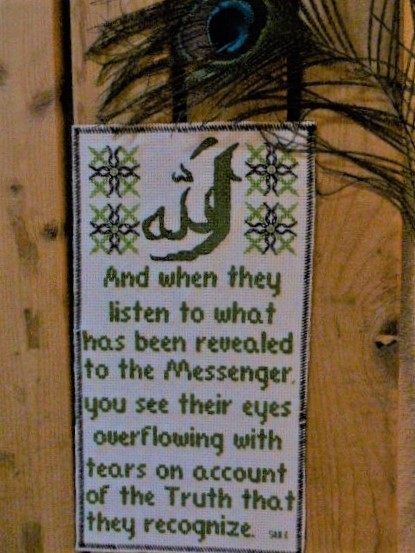 الله
And when they
listen to what
has been revealed
to the Messenger,
you see their eyes
overflowing with
tears on account
of the Truth that
they recognize.